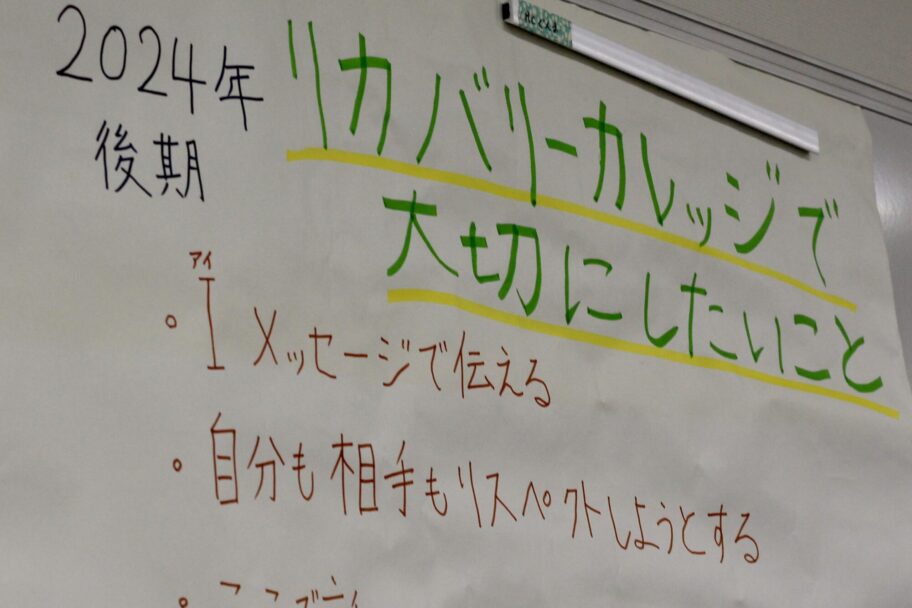 2024年
後期
リカバリーカレッジで
大切にしたいこと
アイ
・I メッセージで伝える
・自分も相手もリスペクトしようとする